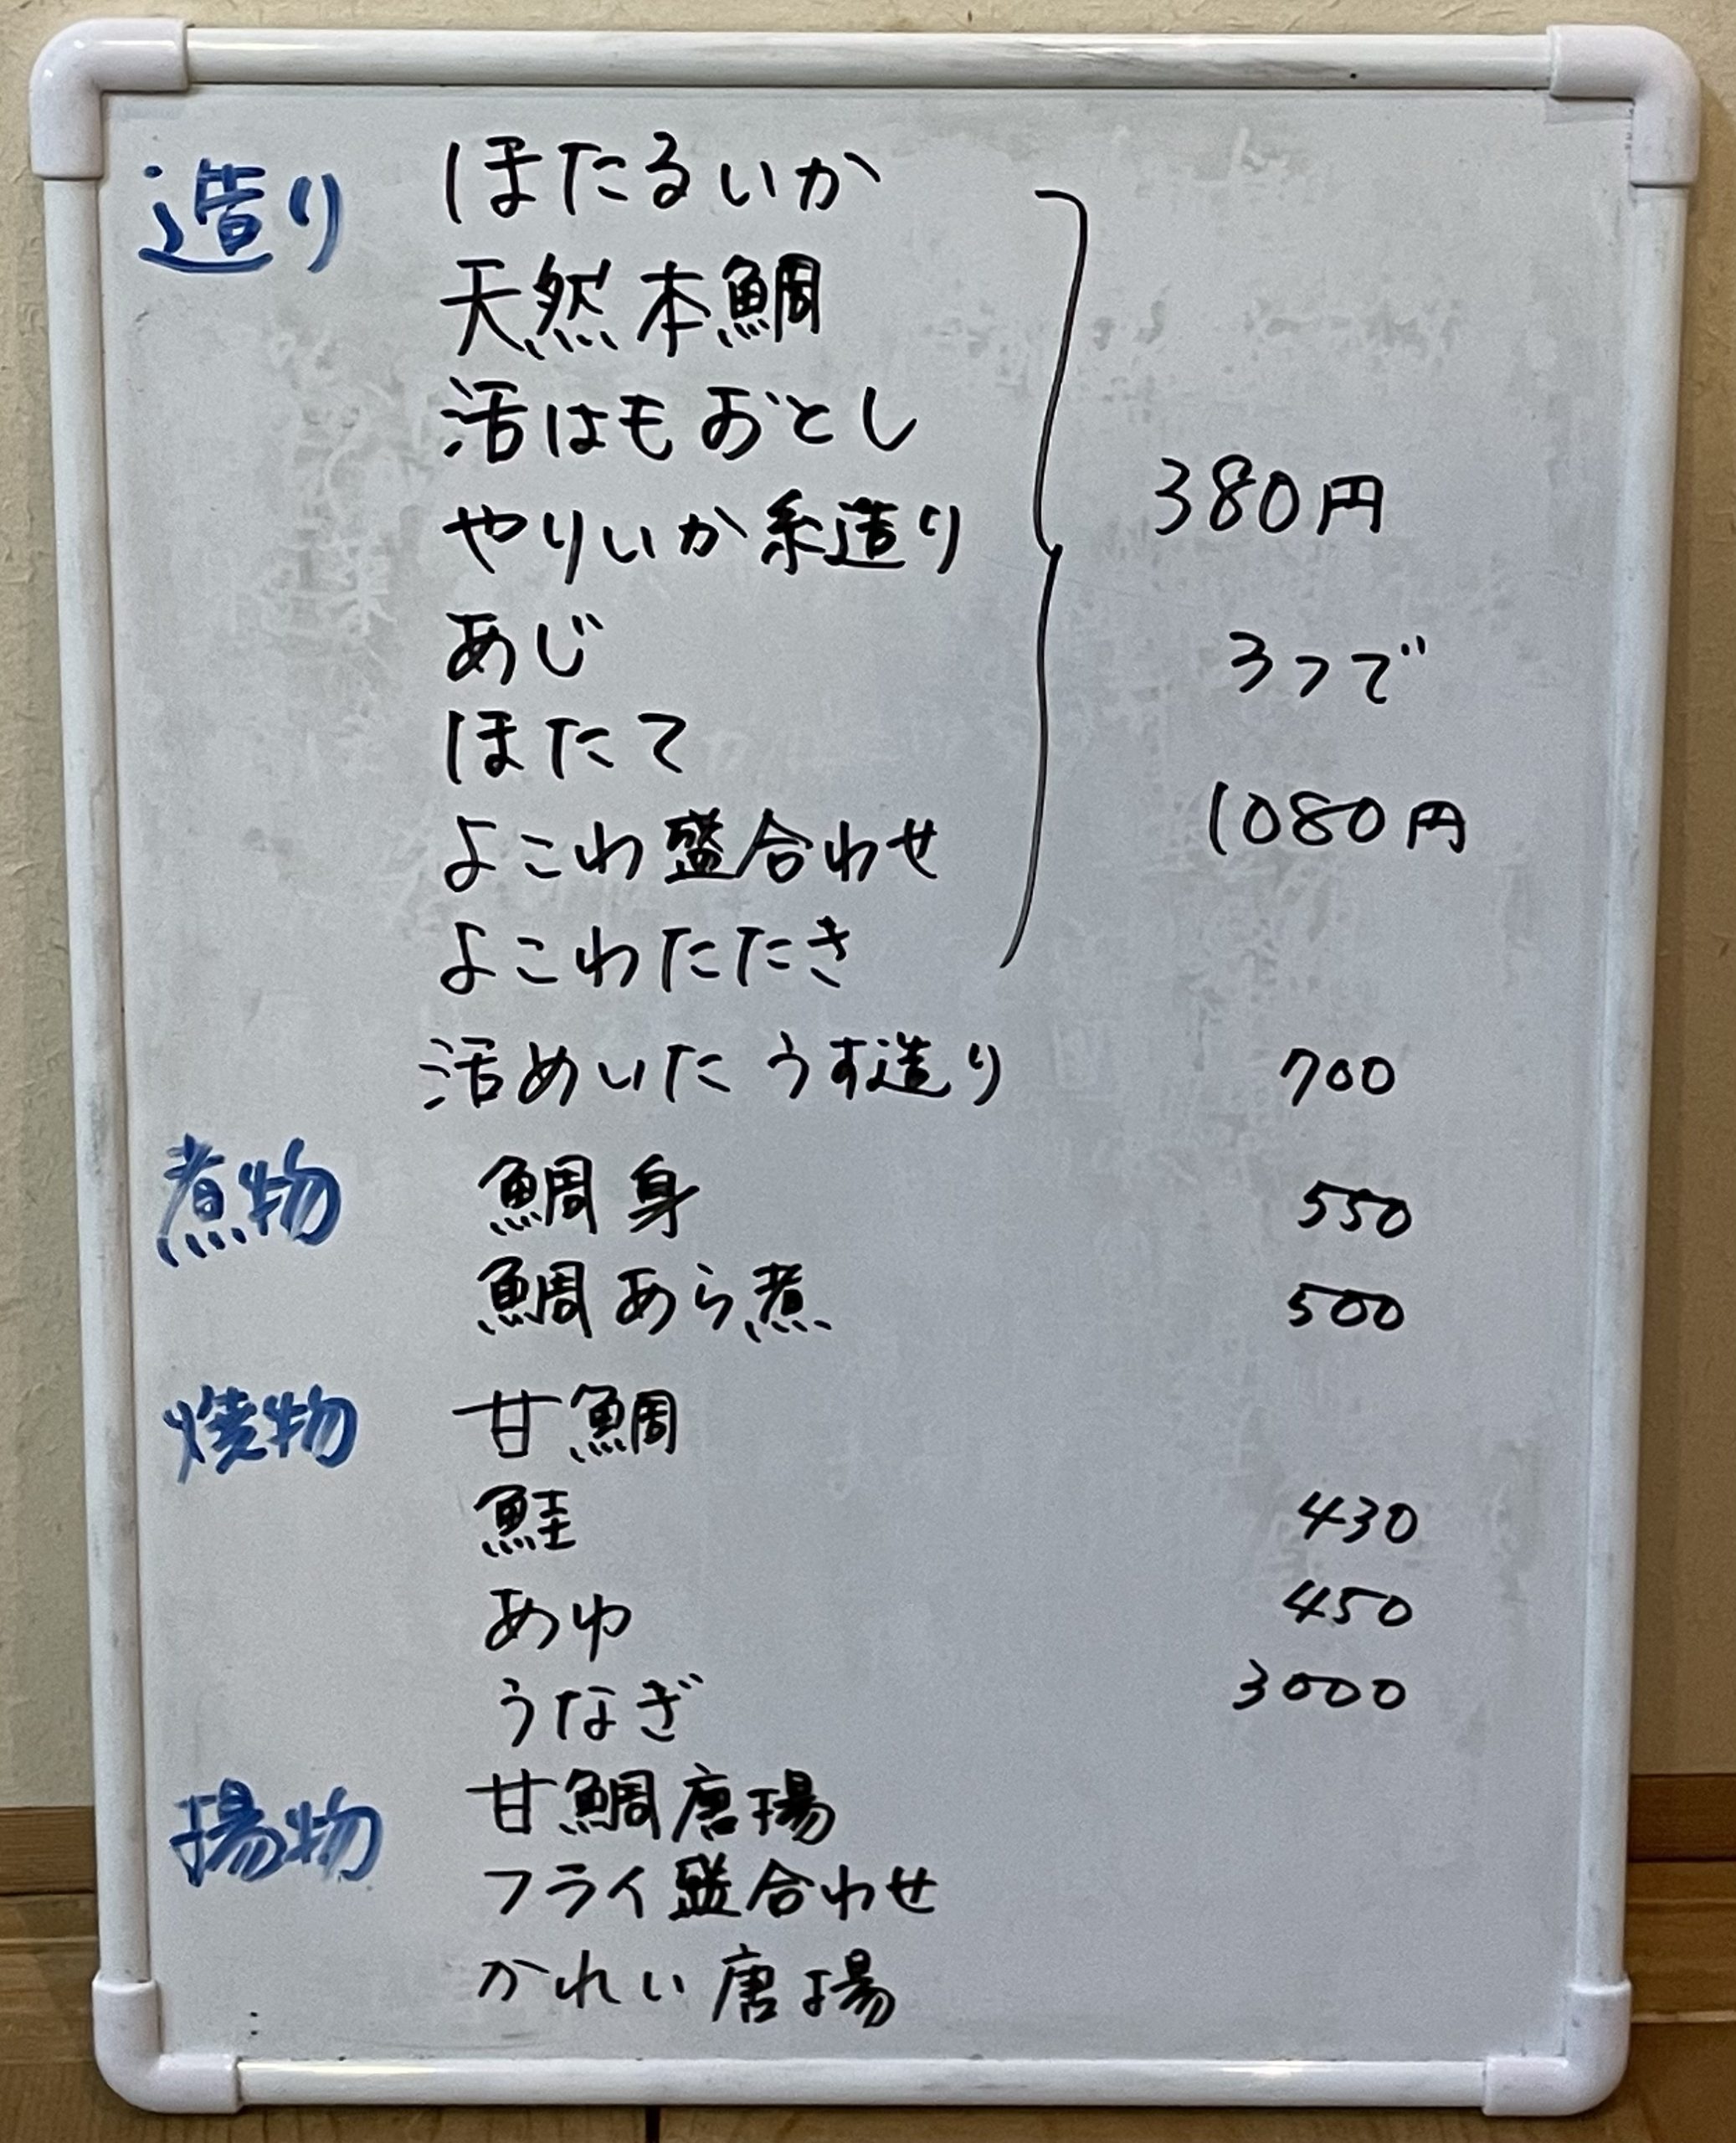 造り ほたるいか
天然本鯛
活はもおとし
やりいか糸造り
あじ
ほたて
よこわ盛合わせ
よこわたたき
380円
3つで
1080円
活めいた うす造り 700
煮物 鯛身 550
鯛あら煮 500
焼物 甘鯛
鮭 430
あゆ 450
うなぎ 3000
揚物 甘鯛唐揚
フライ盛合わせ
かれい唐揚